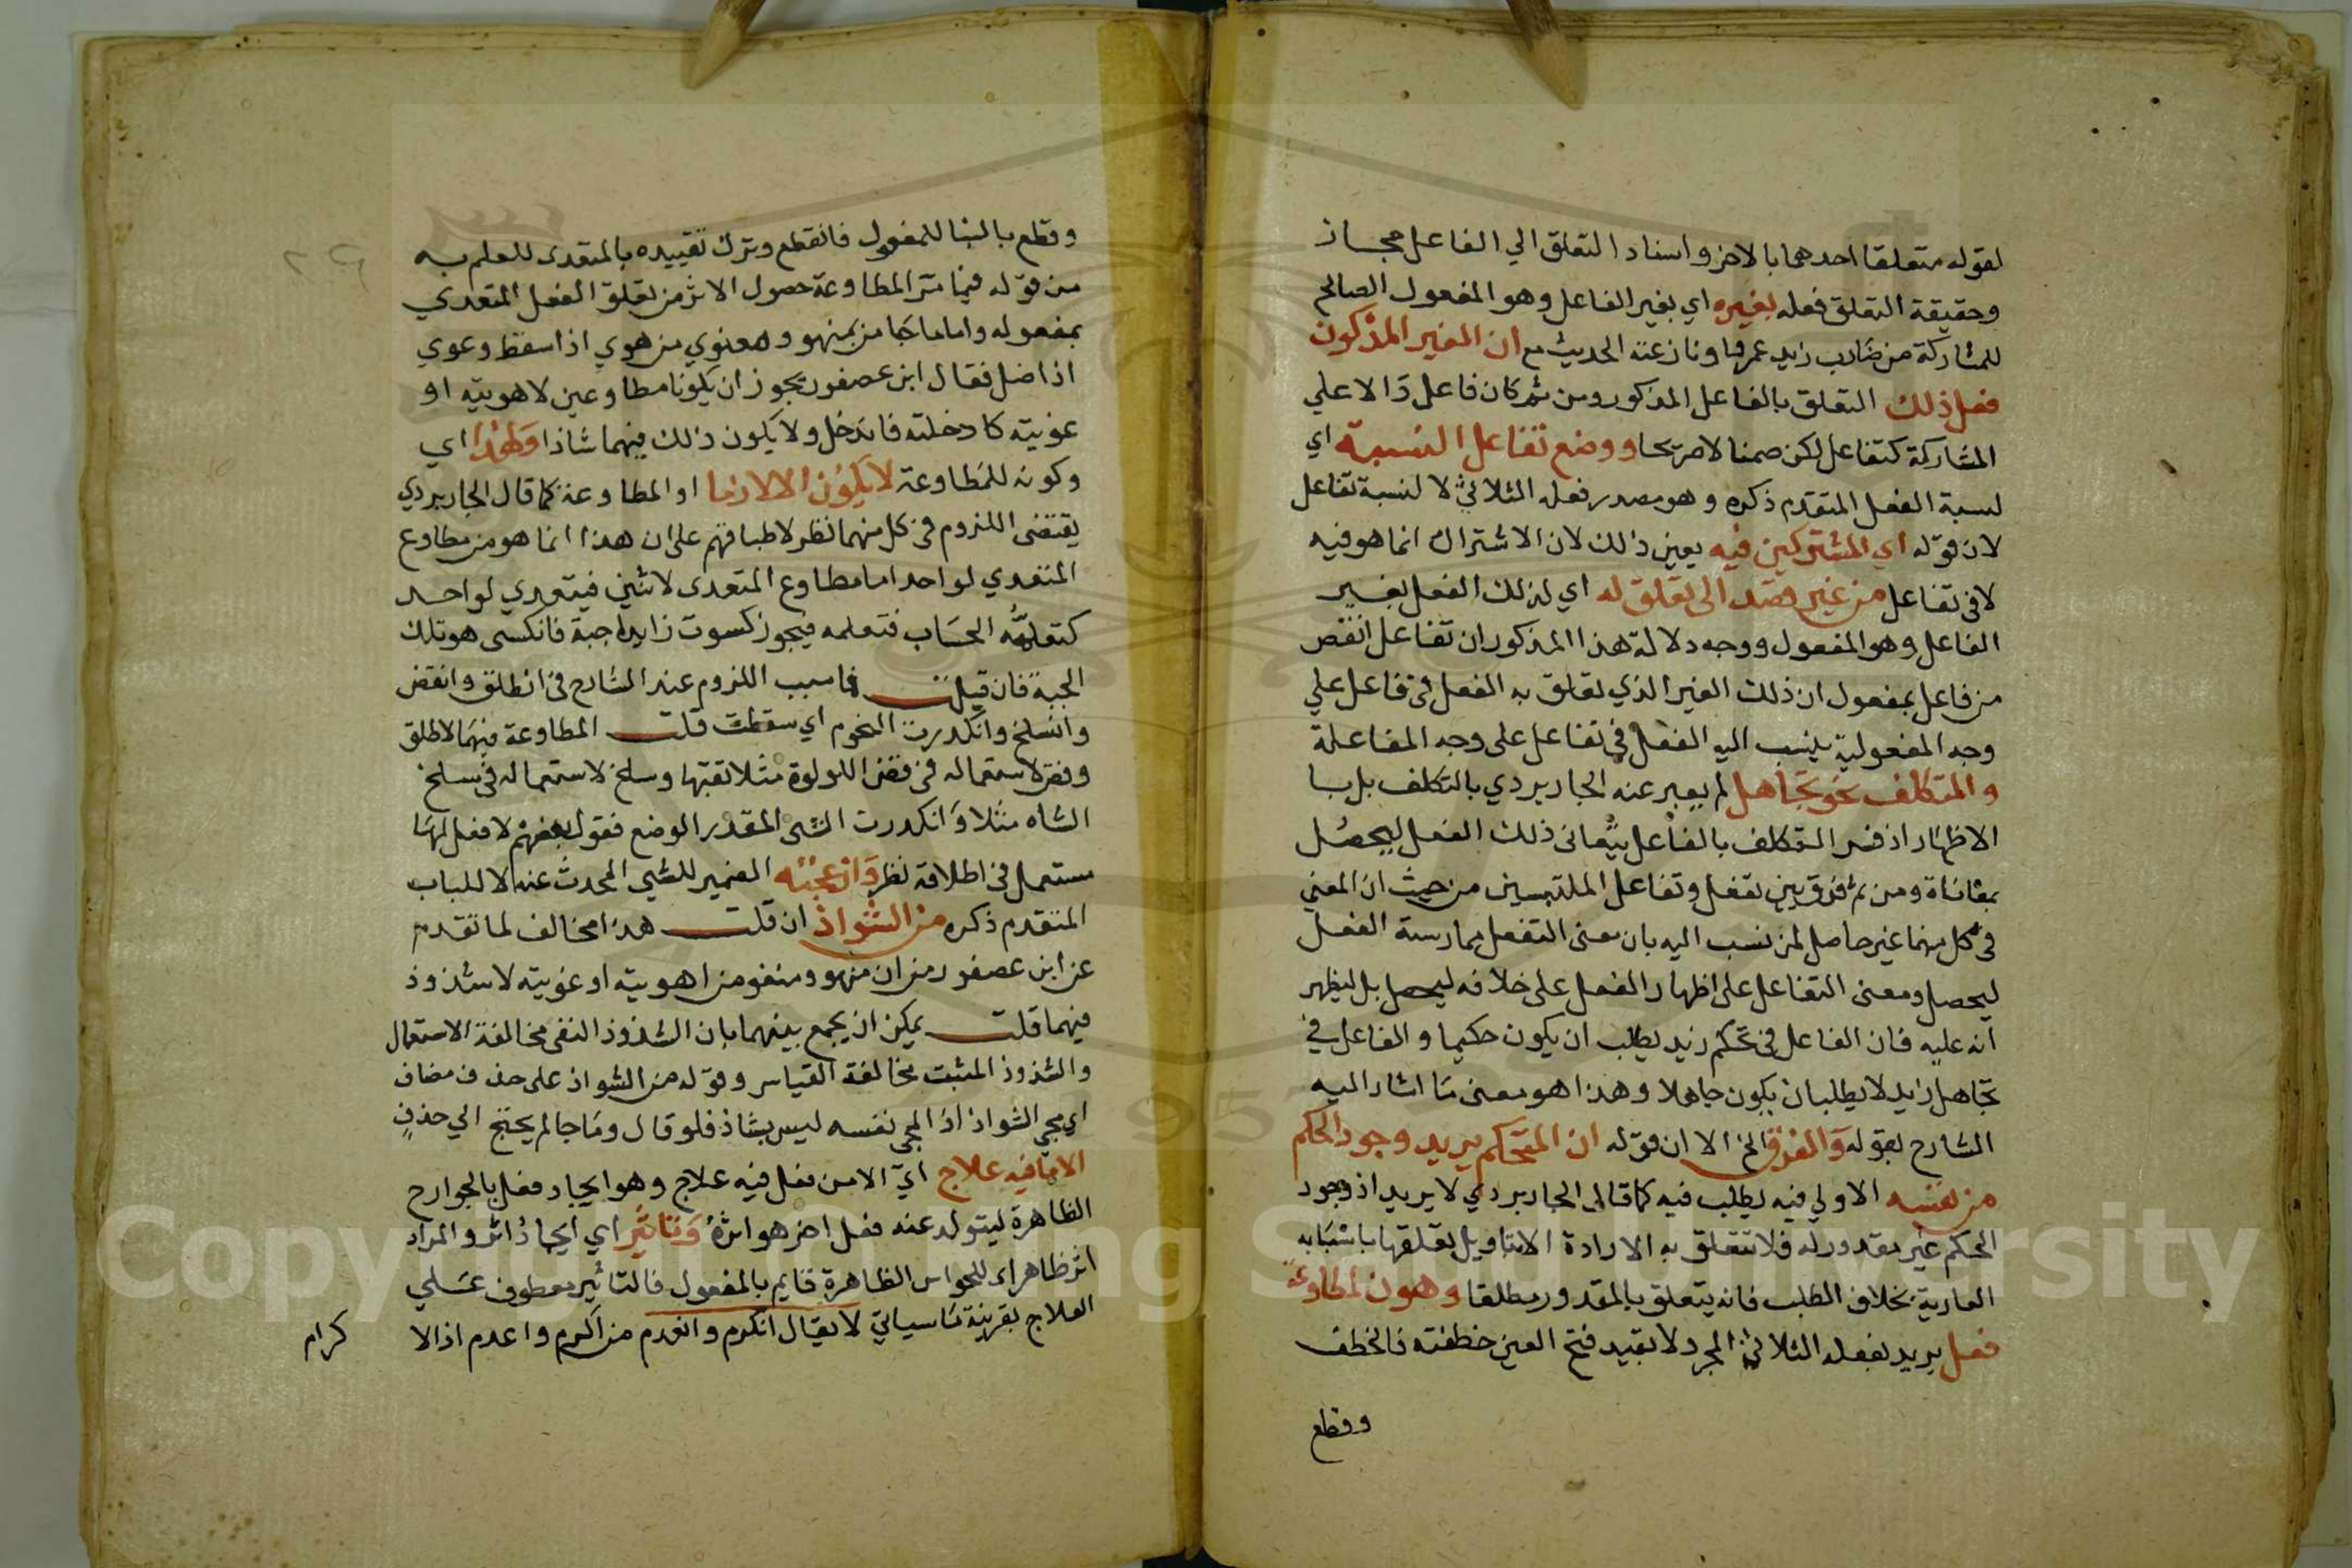 لقوله متعلقا احدهما بالاخر واسناد التعلق الي الفاعل مجاز
وحقيقة التعلق فعله بغيره اي بغير الفاعل وهو المفعول الصالح
للمشاركة من ضارب زيد عمرا ونازعته الحديث مع ان الغير المذكور
فعل ذلك التعلق بالفاعل المذكور ومن ثم كان فاعل دالا علي
المشاركة كتفاعل لكن ضمنا لا صريحا ووضع تفاعل النسبة اي
لنسبة الفعل المتقدم ذكره وهو مصدر فعله الثلاثي لا لنسبة تفاعل
لان قوله اي المشتركين فيه يعين ذلك لان الاشتراك انما هو فيه
لا في تفاعل من غير قصد الى تعلق له اي لذلك الفعل بغير
الفاعل وهو المفعول ووجه دلالة هذا المذكور ان تفاعل انقص
من فاعل بمفعول ان ذلك الغير الذي تعلق به الفعل في فاعل علي
وجه المفعولية ينسب اليه الفعل في تفاعل على وجه المفاعلة
والمتكلف نحو تجاهل لم يعبر عنه الجاربردي بالتكلف بل بـا
الاظهار اذ فسر التكلف بالفاعل يعاني ذلك الفعل ليحصل
بمعاناة ومن ثم فرق بين تفعل وتفاعل الملتبسين من حيث ان المعني
في كل منهما غير حاصل لمن نسب اليه بان معنى التفعل ممارسة الفعل
ليحصل ومعنى التفاعل على اظهار الفعل على خلافه ليحصل بل ليظهر
انه عليه فان الفاعل في تحكم زيد يطلب ان يكون حكيما والفاعل في
تجاهل زايد لا يطلب ان يكون جاهلا وهذا هو معنى ما اشار اليه
الشارح بقوله والفرق الخ الا ان قوله ان المتحكم يريد وجود الحكم
من نفسه الاولي فيه يطلب فيه كما قال الجاربردي لا يريد اذ وجود
الحكم غير مقدور له فلا تتعلق به الارادة الا بتاويل تعلقها باسبابه
العادية بخلاف الطلب فانه يتعلق بالمقدور مطلقا وهو ن لمطاوعة
فعل يريد بفعله الثلاثي المجرد لا بقيد فتح العين خطفته فانخطف
وقطع
وقطع بالبنا للمفعول فانقطع وترك تقييده بالمتعدي للعلم به
من قوله فيما مر المطاوعة حصول الاثر من تعلق الفعل المتعدي
بمفعوله واما ما جا من منهو ومنغوي من هوي اذا سقط وغوي
اذا ضل فقال ابن عصفور يجوز ان يكونا مطاوعين لاهويته او
غويته كادخلته فاندخل ولا يكون ذلك فيهما شاذا ولهذا اي
وكونه للمطاوعة لا يكون الا لازما او المطاوعة كما قال الجاربردي
يقتضى اللزوم في كل منهما نظر لاطباقهم على ان هذا انما هو من مطاوع
المتعدي لواحد اما مطاوع المتعدى لاثنين فيتعدي لواحد
كتعلمه الحساب فتعلمه فيجوز كسوت زايدا جبة فانكسى هو تلك
الجبة فان قيل فما سبب اللزوم عند الشارح في انطلق وانقض
وانسلخ وانكدرت النجوم اي سقطت قلت المطاوعة فيهما لاطلق
وفض لاستعماله في فض اللولوة مثلا ثقبها وسلخ لاستعماله في سلخ
الشاه مثلا وانكدرت الشى المقدر الوضع فقول بعضهم لا فعل لها
مستعمل في اطلاقه نظر وازعجته الضمير للشي المحدث عنه لا للباب
المتقدم ذكره من الشواذ ان قلت هذا مخالف لما تقدم
عن ابن عصفور من ان منهو ومنغو من اهويته او غويته لا شذوذ
فيهما قلت يمكن ان يجمع بينهما بان الشذوذ النفى مخالفة الاستعمال
والشذوذ المثبت مخالفة القياس وقوله من الشواذ على حذف مضاف
اي مجي الشواذ اذ المجي نفسه ليس بشاذ فلو قال وما جا لم يحتج الي حذف
الا ما فيه علاج اي الا من فعل فيه علاج وهو ايجاد فعل بالجوارح
الظاهرة ليتولد عنه فعل اخر هو اثره وتاثير اي ايجاد اثر والمراد
اثر ظاهر اي للحواس الظاهرة قايم بالمفعول فالتاثير معطوف علي
العلاج بقرينة ما سياتي لا يقال انكرم وانعدم من اكرم واعدم اذ الا
كرام